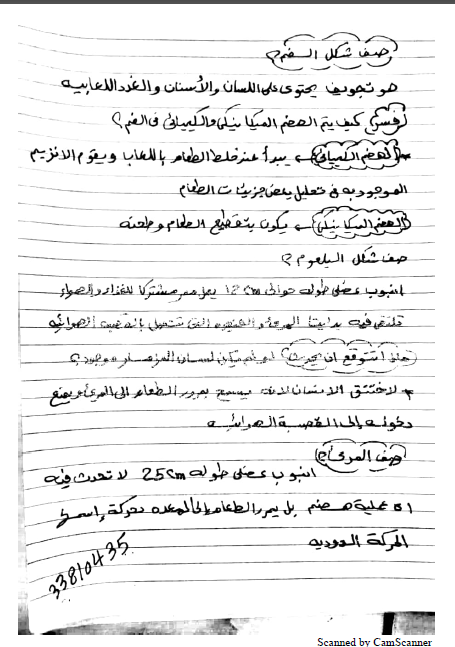 صف شكل الفم؟
هو تجويف يحتوى على اللسان والأسنان والغدد اللعابية
فسر كيف يتم الهضم الميكانيكى والكيميائى فى الفم؟
* الهضم الكيميائى → يبدأ عند خلط الطعام باللعاب ويقوم الانزيم
الموجود به فى تحليل بعض جزيئات الطعام
الهضم الميكانيكى → يكون بتقطيع الطعام وطحنه
صف شكل البلعوم؟
انبوب عضلى طوله حوالى 12 cm يعد ممر مشتركا للغذاء والهواء
تلتقى فيه بدايتا المرىء والحنجره التى تتصل بالقصبة الهوائيه
ماذا تتوقع ان يحدث لو لم يكن لسان المزمار موجود؟
* لاختنق الانسان لانه يسمح بمرور الطعام الى المرىء ويمنع
دخوله إلى القصبة الهوائيه
صف المرىء؟
انبوب عضلى طوله 25cm لا تحدث فيه
اى عملية هضم بل يمرر الطعام إلى المعده بحركة إسمها
الحركة الدوديه
33810435
Scanned by CamScanner